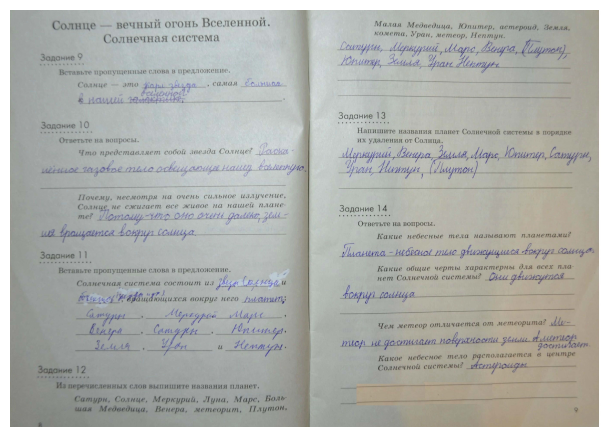 Солнце — вечный огонь Вселенной.
Солнечная система
Задание 9
Вставьте пропущенные слова в предложение.
Солнце — это звезда, самая
в нашей вселенной.
Задание 10
Ответьте на вопросы.
Что представляет собой звезда Солнце? Раска-
лённое газовое тело освещающие нашу
Почему, несмотря на очень сильное излучение,
Солнце не сжигает все живое на нашей плане-
те? Потому-что оно очень далеко, зем-
ля вращается вокруг солнца.
Задание 11
Вставьте пропущенные слова в предложение.
Солнечная система состоит из и
вращающихся вокруг него планет:
Сатурн, Меркурий Марс,
Венера, Сатурн, Юпитер,
Земля, Уран и Нептун.
Задание 12
Из перечисленных слов выпишите названия планет.
Сатурн, Солнце, Меркурий, Луна, Марс, Боль-
шая Медведица, Венера, метеорит, Плутон,
8
Малая Медведица, Юпитер, астероид, Земля,
комета, Уран, метеор, Нептун.
Сатурн, Меркурий, Марс, Венера, (Плутон),
Юпитер, Земля, Уран Нептун.
Задание 13
Напишите названия планет Солнечной системы в порядке
их удаления от Солнца.
Меркурий, Венера, Земля, Марс, Юпитер, Сатурн,
Уран, Нептун, (Плутон)
Задание 14
Ответьте на вопросы.
Какие небесные тела называют планетами?
Планета - небесное тело движущиеся вокруг солнца.
Какие общие черты характерны для всех пла-
нет Солнечной системы? Они движутся
вокруг солнца
Чем метеор отличается от метеорита? Ме-
теор не достигает поверхности земли. А метеор.
достигает.
Какое небесное тело располагается в центре
Солнечной системы? Астероиды
9